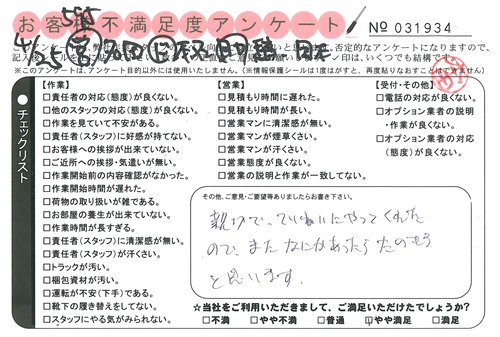 お客様不満足度アンケート
No 031934
チェックリスト
【作業】
□責任者の対応(態度)が良くない。
□他のスタッフの対応(態度)が良くない。
□作業を見ていて不安がある。
□責任者(スタッフ)に好感が持てない。
□お客様への挨拶が出来ていない。
□ご近所への挨拶・気遣いが無い。
□作業開始前の内容確認がなかった。
□作業開始時間が遅れた。
□荷物の取り扱いが雑である。
□お部屋の養生が出来ていない。
□作業時間が長すぎる。
□責任者(スタッフ)に清潔感が無い。
□責任者(スタッフ)が汗くさい。
□トラックが汚い。
□梱包資材が汚い。
□運転が不安(下手)である。
□靴下の履き替えをしてない。
□スタッフにやる気がみられない。
【営業】
□見積もり時間に遅れた。
□見積もり時間が長い。
□営業マンに清潔感が無い。
□営業マンが煙草くさい。
□営業マンが汗くさい。
□営業態度が良くない。
□営業の説明と作業が一致してない。
【受付・その他】
□電話の対応が良くない。
□オプション業者の説明
・作業が良くない。
□オプション業者の対応
(態度)が良くない。
その他、ご意見・ご要望等ありましたらお書き下さい。
親切でていねいにやってくれた
ので、またなにかあったらたのもう
と思います。
☆当社をご利用いただきまして、ご満足いただけたでしょうか?
□不満 □やや不満 □普通 □やや満足 □満足